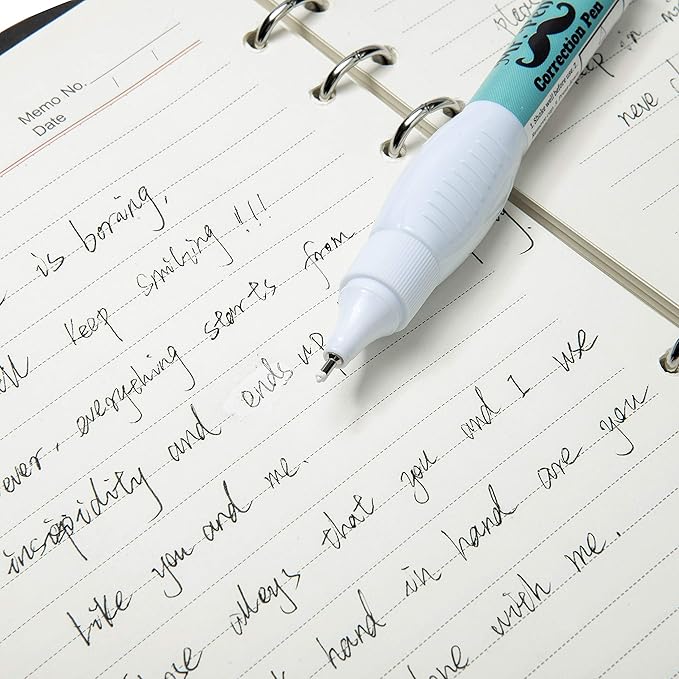 Memo No.
Date
is boring,
keep smiling!!!
ever, everything starts from
insipidity and ends up
like you and me.
alleys that you and I use
hand in hand are you
with me.
please
in
never
Correction Pen